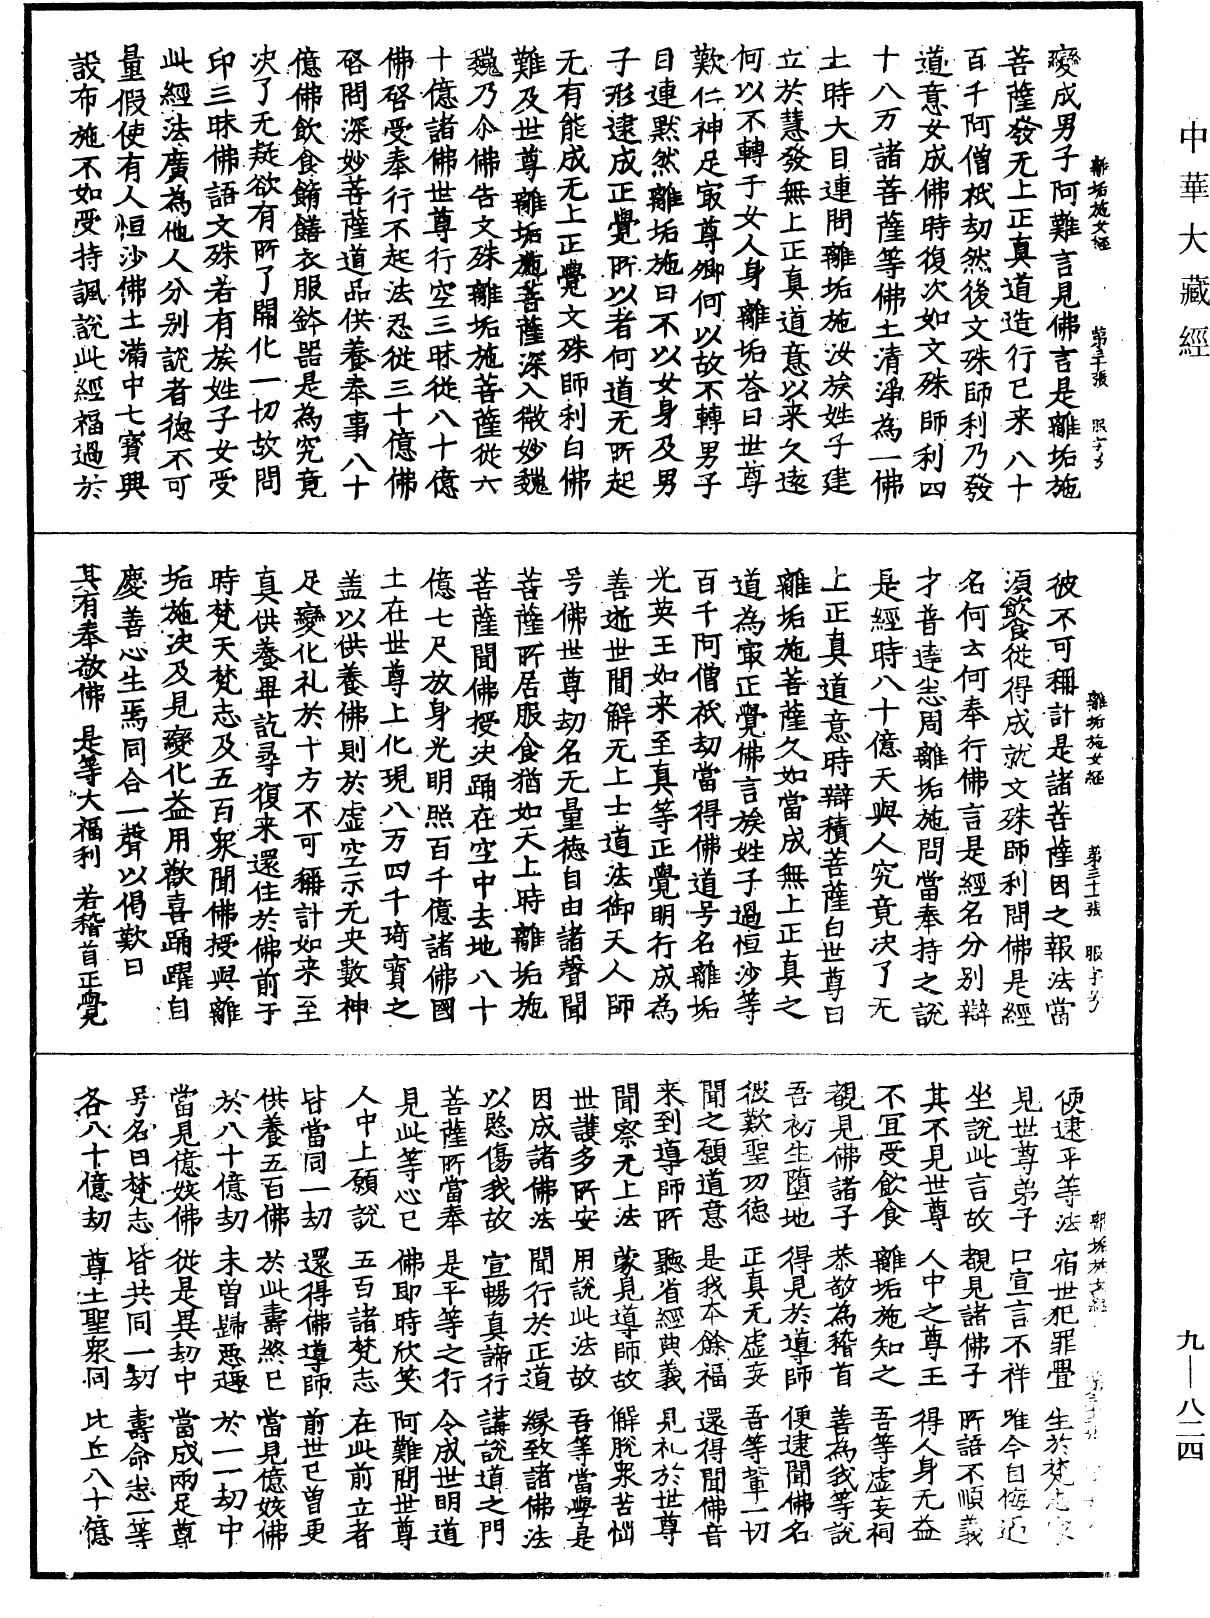 中華大藏經
離垢施女經　第三十張　服字号
變成男子阿難言見佛言是離垢施
菩薩發无上正真道造行已来八十
百千阿僧祇劫然後文殊師利乃發
道意女成佛時復次如文殊師利四
十八万諸菩薩等佛土清淨為一佛
土時大目連問離垢施汝族姓子建
立於慧發無上正真道意以来久遠
何以不轉于女人身離垢荅曰世尊
歎仁神足㝡尊卿何以故不轉男子
目連默然離垢施曰不以女身及男
子形逮成正覺所以者何道无所起
无有能成无上正覺文殊師利白佛
難及世尊離垢施菩薩深入微妙魏
魏乃尒佛告文殊離垢施菩薩從六
十億諸佛世尊行空三昧從八十億
佛啓受奉行不起法忍從三十億佛
啓問深妙菩薩道品供養奉事八十
億佛飲食餚饍衣服鉢器是為究竟
决了无疑欲有所了開化一切故問
印三昧佛語文殊若有族姓子女受
此經法廣為他人分别說者德不可
量假使有人恒沙佛土滿中七寳興
設布施不如受持諷說此經福過於
離垢施女經　第三十一張　服字号
彼不可稱計是諸菩薩因之報法當
須飲食從得成就文殊師利問佛是經
名何云何奉行佛言是經名分别辯
才普達悉周離垢施問當奉持之說
是經時八十億天與人究竟决了无
上正真道意時辯積菩薩白世尊曰
離垢施菩薩久如當成無上正真之
道為㝡正覺佛言族姓子過恒沙等
百千阿僧祇劫當得佛道号名離垢
光英王如来至真等正覺明行成為
善逝世間解无上士道法御天人師
号佛世尊劫名无量德自由諸聲聞
菩薩所居服食猶如天上時離垢施
菩薩聞佛授决踊在空中去地八十
億七尺放身光明照百千億諸佛國
土在世尊上化現八万四千琦寳之
盖以供養佛則於虛空示无央數神
足變化礼於十方不可稱計如来至
真供養畢訖尋復来還住於佛前于
時梵天梵志及五百衆聞佛授與離
垢施决及見變化益用歡喜踊躍自
慶善心生焉同合一聲以偈歎曰
其有奉敬佛　是等大福利　若稽首正覺
便逮平等法　宿世犯罪舋　生於梵志家
見世尊弟子　口宣言不祥　唯今自悔過
坐說此言故　覩見諸佛子　所語不順義
其不見世尊　人中之尊王　得人身无益
不宜受飲食　離垢施知之　吾等虛妄祠
覩見佛諸子　恭敬為稽首　善為我等說
吾初生墮地　得見於導師　便逮聞佛名
彼歎聖功德　正真无虛妄　吾等輩一切
聞之願道意　是我本餘福　還得聞佛音
来到導師所　聽省經典義　見礼於世尊
聞察无上法　蒙見導師故　解脫衆苦惱
世護多所安　用說此法故　吾等當學是
因成諸佛法　聞行於正道　緣致諸佛法
以愍傷我故　宣暢真諦行　講說道之門
菩薩所當奉　是平等之行　令成世明道
見此等心已　佛即時欣笑　阿難問世尊
人中上願說　五百諸梵志　在此前立者
皆當同一劫　還得佛導師　前世已曽更
供養五百佛　於此壽終已　當見億姟佛
於八十億劫　未曽歸惡趣　於一一劫中
當見億姟佛　從是其劫中　當成兩足尊
号名曰梵志　皆共同一劫　壽命悉一等
各八十億劫　尊土聖衆同　比丘八十億
九—八二四